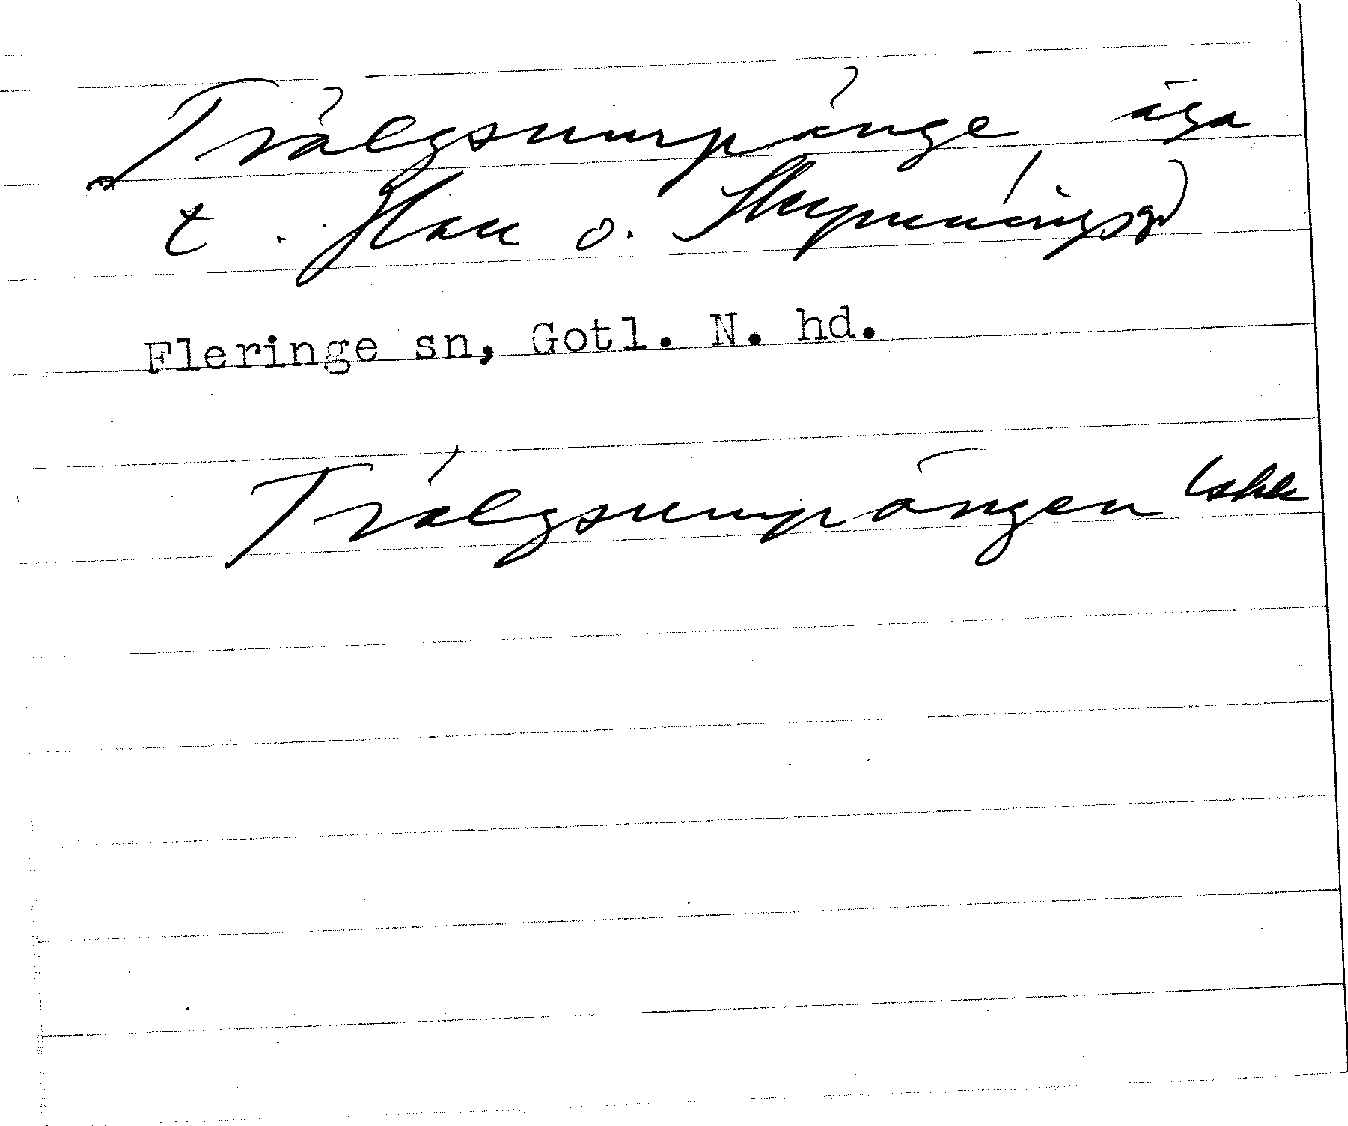 Trälgsumpänge äga
t. Hau o. Skymningsgd
Fleringe sn, Gotl. N. hd.
Trälgsumpängen